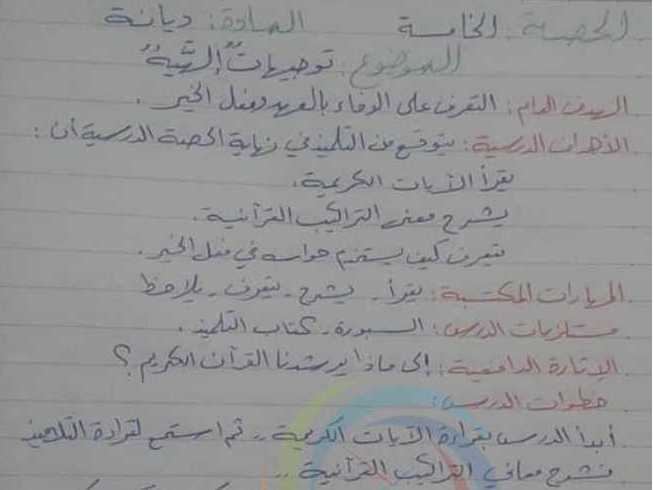 الحصة: الخامسة المادة: ديانة
الموضوع: توجيهات إلهيّة"
الهدف العام: التعرف على الوفاء بالعهد وفعل الخير.
الأهداف الدرسية: يتوقع من التلميذ في نهاية الحصة الدرسية أن:
يقرأ الآيات الكريمة.
يشرح معنى التراكيب القرآنية.
يتعرف كيف يستخدم حواسه في فعل الخير.
المهارات المكتسبة: يقرأ - يشرح - يتعرف - يلاحظ
مستلزمات الدرس: السبورة - كتاب التلميذ.
الإثارة الدافعية: إلى ماذا يرشدنا القرآن الكريم؟
خطوات الدرس:
أبدأ الدرس بقراءة الآيات الكريمة .. ثم استمع لقراءة التلاميذ
فنشرح معاني التراكيب القرآنية ..